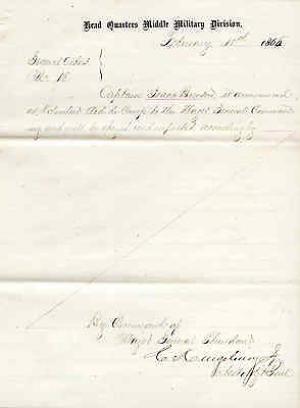 Head Quarters Middle Military Division,
February
General Orders
No. 16
Captain is announced
as Volunteer Aide de Camp to the Major General Command
ing and will be obeyed and respected accordingly
By Command of
Major General Sheridan